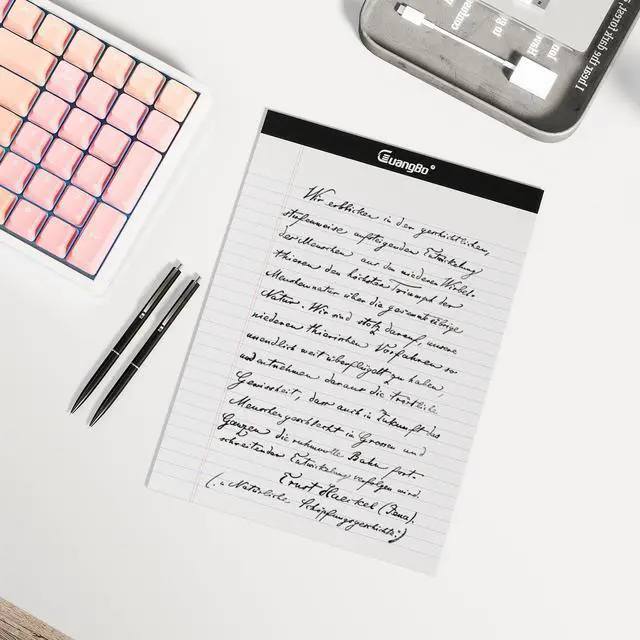 GuangBo
Wir erblicken in der geschichtlichen,
stufenweise aufsteigenden Entwickelung
der Menschen aus den niederen Wirbel-
thieren den höchsten Triumph der
Menschennatur über die gesammte übrige
Natur. Wir sind stolz darauf, unsere
niederen thierischen Vorfahren so
unendlich weit überflügelt zu haben,
und entnehmen daraus die tröstliche
Gewissheit, dass auch in Zukunft das
Menschengeschlecht im Grossen und
Ganzen die ruhmvolle Bahn fort-
schreitender Entwickelung verfolgen wird.
Ernst Haeckel (Jena).
(Natürliche Schöpfungsgeschichte)